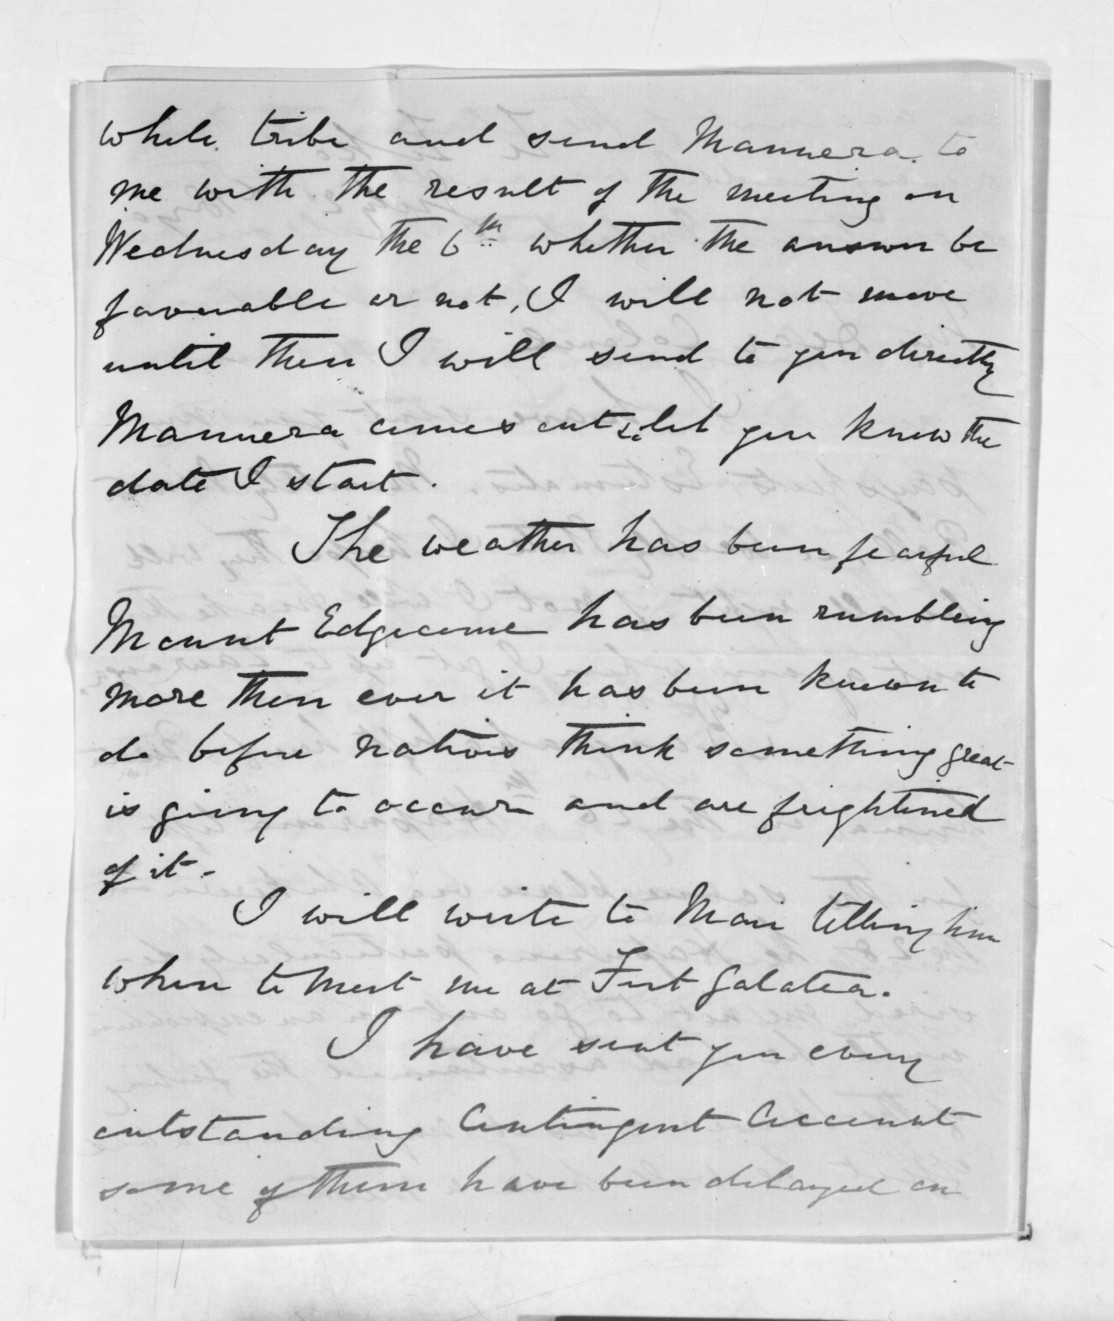 whole tribe and send Mannera to
me with the result of the meeting on
Wednesday the 6th whether the answer be
favourable or not, I will not move
until then I will send to you directly
Mannera comes out & let you know the
date I start.
The weather has been fearful
Mount Edgecume has been rumbling
more then ever it has been known to
do before natives think something great
is going to occur and are frightened
of it.
I will write to Mair telling him
when to meet me at Fort Galatea.
I have sent you every
outstanding Contingent Account
some of them have been delayed on